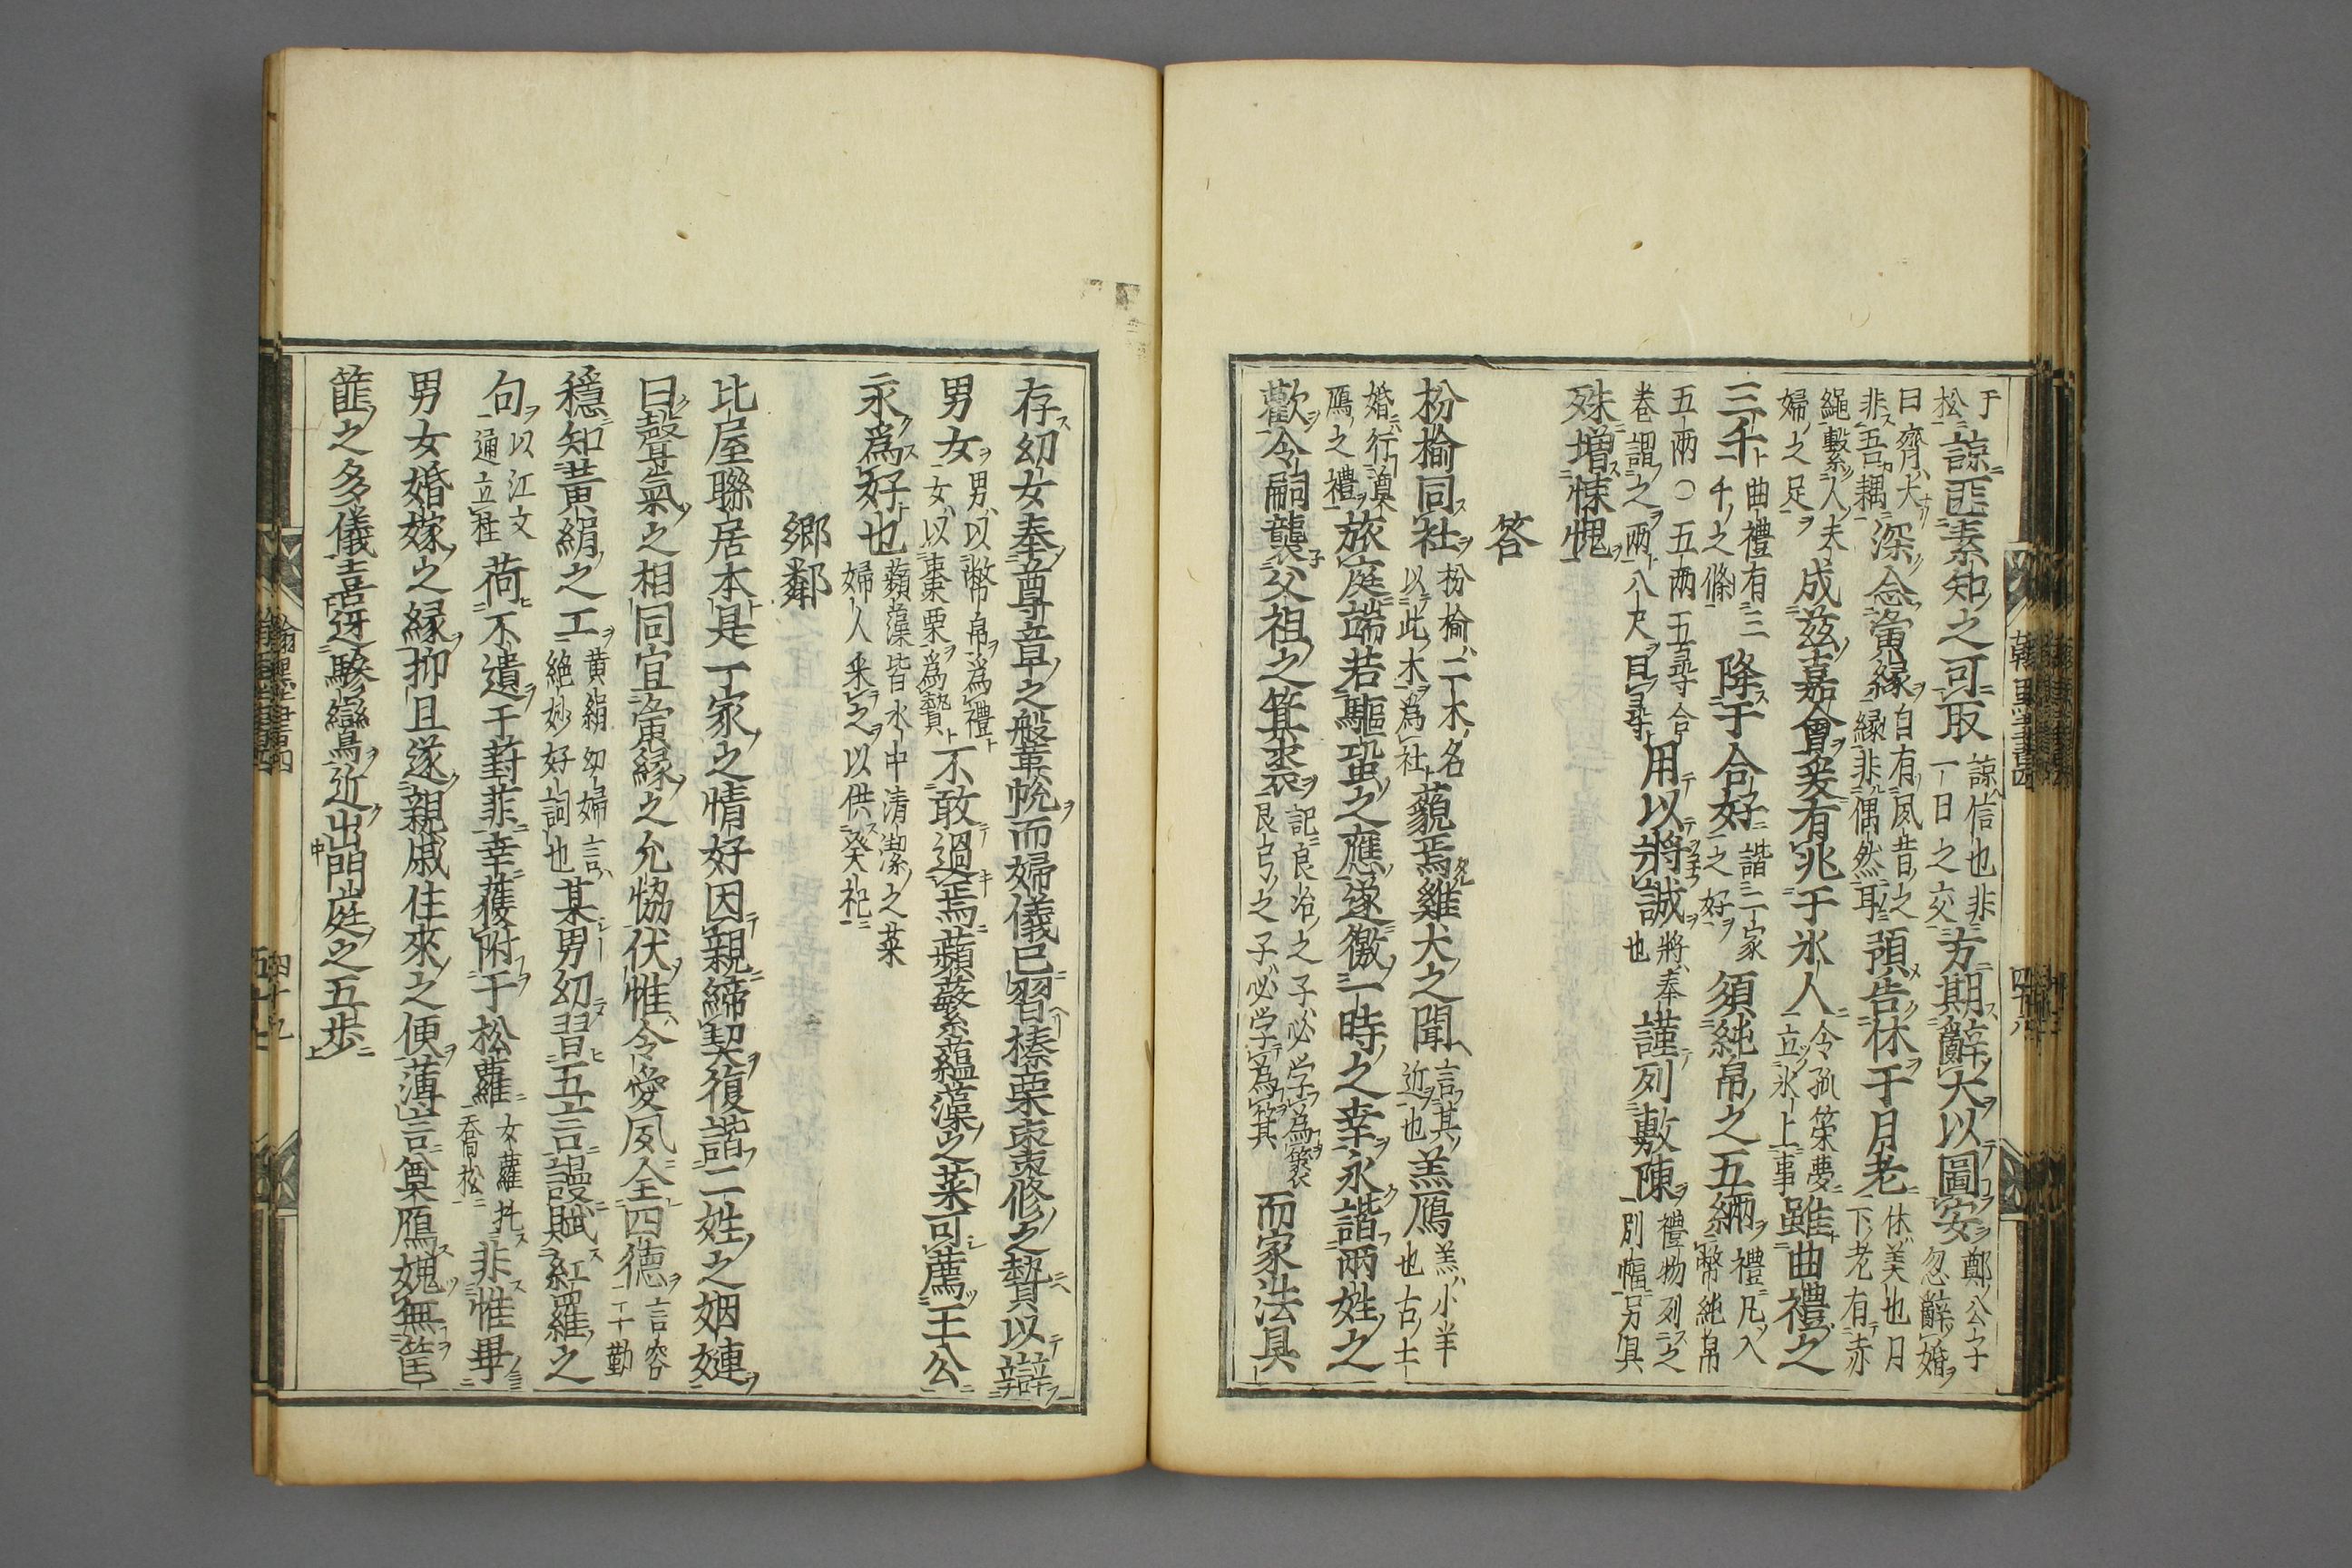 于松諒匪素知之可取諒信也非一日之交方期辭大以圖安鄭公子忽辭婚
曰齊大非吾耦深念夤緣自有夙昔之緣非偶然耳預告休于月老休美也月下老有赤
繩繫人夫婦之足成兹嘉會爰有兆于氷人令狐策夢立氷上事雖曲禮之
三千曲禮有三千之條降于合好諧二家之好須純帛之五緉禮凡入幣純帛
五兩〇五兩五尋合卷謂之兩八尺曰尋用以將誠將奉也謹列敷陳禮物列之別幅另具
殊增悚愧
答
枌榆同社枌榆二木名以此木為社藐焉雞犬之聞言其近也羔鴈羔小羊也古士
婚行奠鴈之禮旅庭端若驅蛩之應遂徼一時之幸永諧兩姓之
歡令嗣襲父祖之箕裘記良冶之子必学為裘良弓之子必学為箕而家法具
存幼女奉尊章之般帨而婦儀已習榛栗棗修之贄以辯
男女男以幣帛為禮女以棗栗為贄不敢過焉蘋蘩蘊藻之菜可薦王公
永為好也蘋藻皆水中清潔之菜婦人采之以供癸祀
鄉鄰
比屋聯居本是一家之情好因親締契復諧二姓之姻婕
曰聲氣之相同宜夤緣之允恊伏惟令愛夙全四德言容工勤
穩知黃絹之工黄絹幼婦言絶妙好詞也某男幼習五言謾賦紅羅之
句以江文通立社荷不遺于葑菲幸獲附于松蘿女蘿托喬松非惟畢
男女婚嫁之緣抑且遂親戚往來之便薄言奠鴈媿無筐
篚之多儀喜迓驂鸞近出門庭之五歩
翰墨書四
四十九